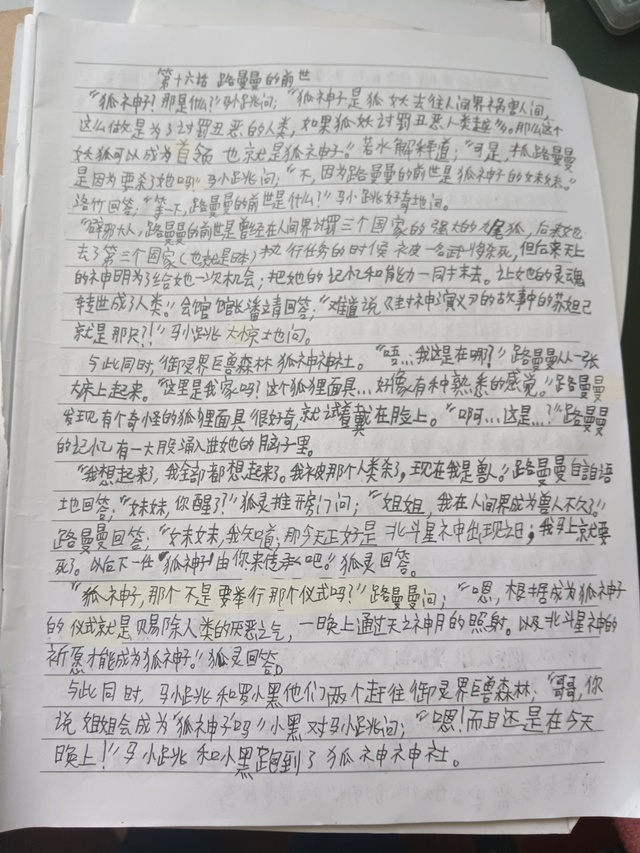 第十六话 路曼曼的前世
“狐神子?那是什么?”马小跳问;“狐神子是狐妖去往人间界祸害人间,
这么做是为了讨罚丑恶的人类,如果狐妖讨罚丑恶人类越多。那么这个
妖狐可以成为首领 也就是狐神子。”若水解释道;“可是,抓路曼曼
是因为要杀了她吗?”马小跳问;“不,因为路曼曼的前世是狐神子的妹妹。”
洛竹回答;“等一下,路曼曼的前世是什么!”马小跳好奇地问。
“辟邪大人,路曼曼的前世是曾经在人间界讨罚三个国家的强大的九尾狐,后来她
去了第三个国家(也就是日本)执行任务的时候被一名武将杀死,但后来天上
的神明为了给她一次机会;把她的记忆和能力一同封未去。让她的灵魂
转世成了人类。”会馆馆长潘靖回答;“难道说《封神演义》的故事中的苏妲己
就是那只?!”马小跳大惊土地问。
与此同时,御灵界巨兽森林 狐神神社。“唔…我这是在哪?”路曼曼从一张
大床上起来。“这里是我家吗?这个狐狸面具…好像有种熟悉的感觉。”路曼曼
发现有个奇怪的狐狸面具很好奇,就试着戴在脸上。“啊…这是…?”路曼曼
的记忆有一大股涌入进她的脑子里。
“我想起来了,我全部都想起来了。我被那个人类杀了,现在我是兽人。”路曼曼自言自语
地回答;“妹妹,你醒了?”狐灵推开房门问;“姐姐,我在人间界成为兽人不久?”
路曼曼回答;“妹妹,我知道;那今天正好是 北斗星神出现之日;我马上就要
死了。以后下一任“狐神子”由你来传承吧。”狐灵回答。
“狐神子,那个不是要举行那个仪式吗?”路曼曼问;“嗯,根据成为狐神子
的仪式就是驱除人类的厌恶之气,一晚上通过天之神月的照射。以及北斗星神的
祈愿才能成为狐神子。”狐灵回答。
与此同时,马小跳和罗小黑他们两个赶往御灵界巨兽森林;“哥,你
说姐姐会成为“狐神子”吗”小黑对马小跳问;“嗯!而且还是在今天
晚上!”马小跳和小黑跑到了狐神神社。